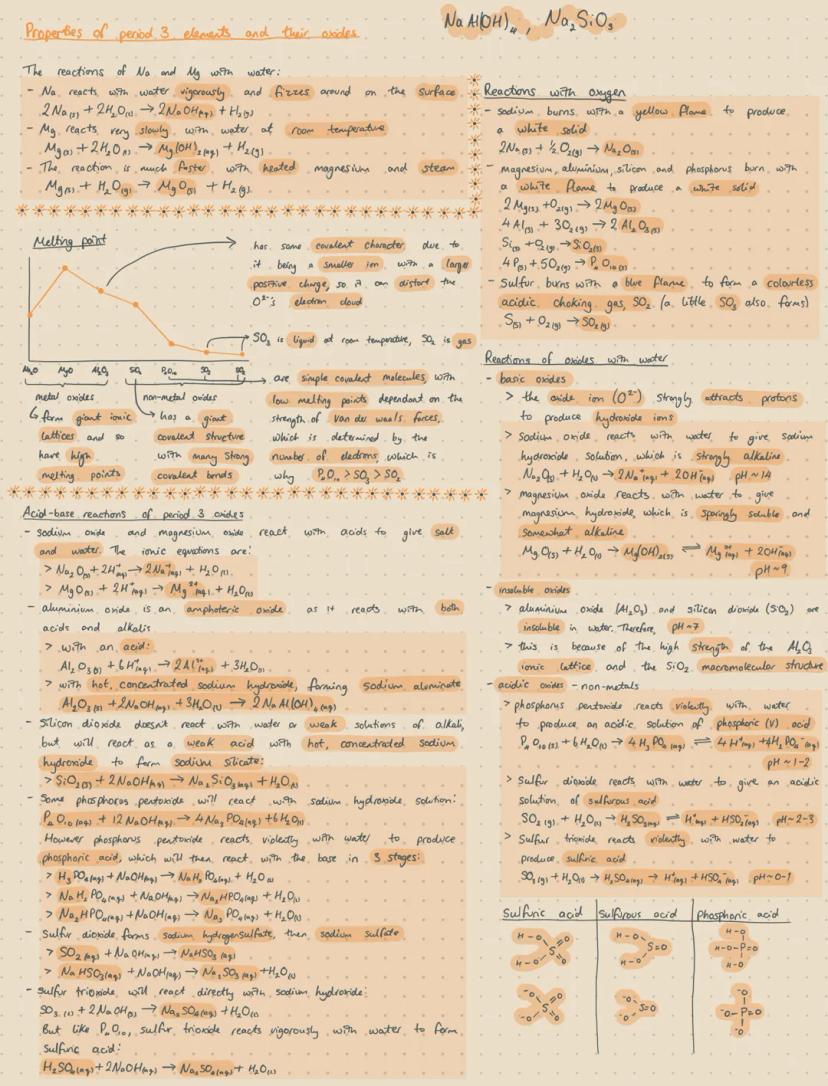 NaAl(OH)₄, Na₂SiO₃
Properties of period 3 elements and their oxides
The reactions of Na and Mg with water:
- Na reacts with water vigorously and fizzes around on the surface
2Na(s) + 2H₂O(l) → 2NaOH(aq) + H₂(g)
- Mg reacts very slowly with water at room temperature
Mg(s) + 2H₂O(l) → Mg(OH)₂(aq) + H₂(g)
- The reaction is much faster with heated magnesium and steam
Mg(s) + H₂O(g) → MgO(s) + H₂(g)
Melting point
has some covalent character due to
it being a smaller ion with a larger
positive charge, so it can distort the
O²⁻'s electron cloud
SO₃ is liquid at room temperature, SO₂ is gas
Na₂O MgO Al₂O₃ SiO₂ P₄O₁₀ SO₃ SO₂
metal oxides
↳ form giant ionic
lattices and so
have high
melting points
non-metal oxides
→ has a giant
covalent structure
with many strong
covalent bonds
are simple covalent molecules with
low melting points dependant on the
strength of van der waals forces,
which is determined by the
number of electrons, which is
why P₄O₁₀ > SO₃ > SO₂
Acid-base reactions of period 3 oxides
- sodium oxide and magnesium oxide react with acids to give salt
and water. The ionic equations are:
> Na₂O(s) + 2H⁺(aq) → 2Na⁺(aq) + H₂O(l)
> MgO(s) + 2H⁺(aq) → Mg²⁺(aq) + H₂O(l)
- aluminium oxide is an amphoteric oxide as it reacts with both
acids and alkalis
> with an acid:
Al₂O₃(s) + 6H⁺(aq) → 2Al³⁺(aq) + 3H₂O(l)
> with hot, concentrated sodium hydroxide, forming sodium aluminate
Al₂O₃(s) + 2NaOH(aq) + 3H₂O(l) → 2NaAl(OH)₄(aq)
- Silicon dioxide doesn't react with water or weak solutions of alkali,
but will react as a weak acid with hot, concentrated sodium
hydroxide to form sodium silicate:
> SiO₂(s) + 2NaOH(aq) → Na₂SiO₃(aq) + H₂O(l)
- Some phosphorus pentoxide will react with sodium hydroxide solution:
P₄O₁₀(s) + 12NaOH(aq) → 4Na₃PO₄(aq) + 6H₂O(l)
However phosphorus pentoxide reacts violently with water to produce
phosphoric acid, which will then react with the base in 3 stages:
> H₃PO₄(aq) + NaOH(aq) → NaH₂PO₄(aq) + H₂O(l)
> NaH₂PO₄(aq) + NaOH(aq) → Na₂HPO₄(aq) + H₂O(l)
> Na₂HPO₄(aq) + NaOH(aq) → Na₃PO₄(aq) + H₂O(l)
- Sulfur dioxide forms sodium hydrogensulfate, then sodium sulfate
> SO₂(g) + NaOH(aq) → NaHSO₃(aq)
> NaHSO₃(aq) + NaOH(aq) → Na₂SO₃(aq) + H₂O(l)
- sulfur trioxide will react directly with sodium hydroxide:
SO₃(l) + 2NaOH(aq) → Na₂SO₄(aq) + H₂O(l)
But like P₄O₁₀, sulfur trioxide reacts vigorously with water to form
sulfuric acid:
H₂SO₄(aq) + 2NaOH(aq) → Na₂SO₄(aq) + H₂O(l)
Reactions with oxygen
- sodium burns with a yellow flame to produce
a white solid
2Na(s) + ½O₂(g) → Na₂O(s)
- magnesium, aluminium, silicon and phosphorus burn with
a white flame to produce a white solid
2Mg(s) + O₂(g) → 2MgO(s)
4Al(s) + 3O₂(g) → 2Al₂O₃(s)
Si(s) + O₂(g) → SiO₂(s)
4P(s) + 5O₂(g) → P₄O₁₀(s)
- Sulfur burns with a blue flame to form a colourless
acidic choking gas, SO₂ (a little SO₃ also forms)
S(s) + O₂(g) → SO₂(g)
Reactions of oxides with water
- basic oxides
> the oxide ion (O²⁻) strongly attracts protons
to produce hydroxide ions
> Sodium oxide reacts with water to give sodium
hydroxide solution, which is strongly alkaline
Na₂O(s) + H₂O(l) → 2Na⁺(aq) + 2OH⁻(aq) pH~14
> magnesium oxide reacts with water to give
magnesium hydroxide, which is sparingly soluble and
somewhat alkaline
MgO(s) + H₂O(l) → Mg(OH)₂(s) ⇌ Mg²⁺(aq) + 2OH⁻(aq)
pH~9
- insoluble oxides
> aluminium oxide (Al₂O₃) and silicon dioxide (SiO₂) are
insoluble in water. Therefore, pH~7
> this is because of the high strength of the Al₂O₃
ionic lattice and the SiO₂ macromolecular structure
- acidic oxides - non-metals
> phosphorus pentoxide reacts violently with water
to produce an acidic solution of phosphoric (V) acid
P₄O₁₀(s) + 6H₂O(l) → 4H₃PO₄(aq) ⇌ 4H⁺(aq) + 4H₂PO₄⁻(aq)
pH~1-2
> Sulfur dioxide reacts with water to give an acidic
solution of sulfurous acid
SO₂(g) + H₂O(l) → H₂SO₃(aq) ⇌ H⁺(aq) + HSO₃⁻(aq) pH~2-3
> Sulfur trioxide reacts violently with water to
produce sulfuric acid
SO₃(g) + H₂O(l) → H₂SO₄(aq) → H⁺(aq) + HSO₄⁻(aq) pH~0-1
Sulfuric acid Sulfurous acid Phosphoric acid
H-O S =O =O H-O
H-O S=O H-O
H-O H-O-P=O H-O
⁻O S =O =O ⁻O
⁻O S=O ⁻O
⁻O ⁻O-P=O ⁻O